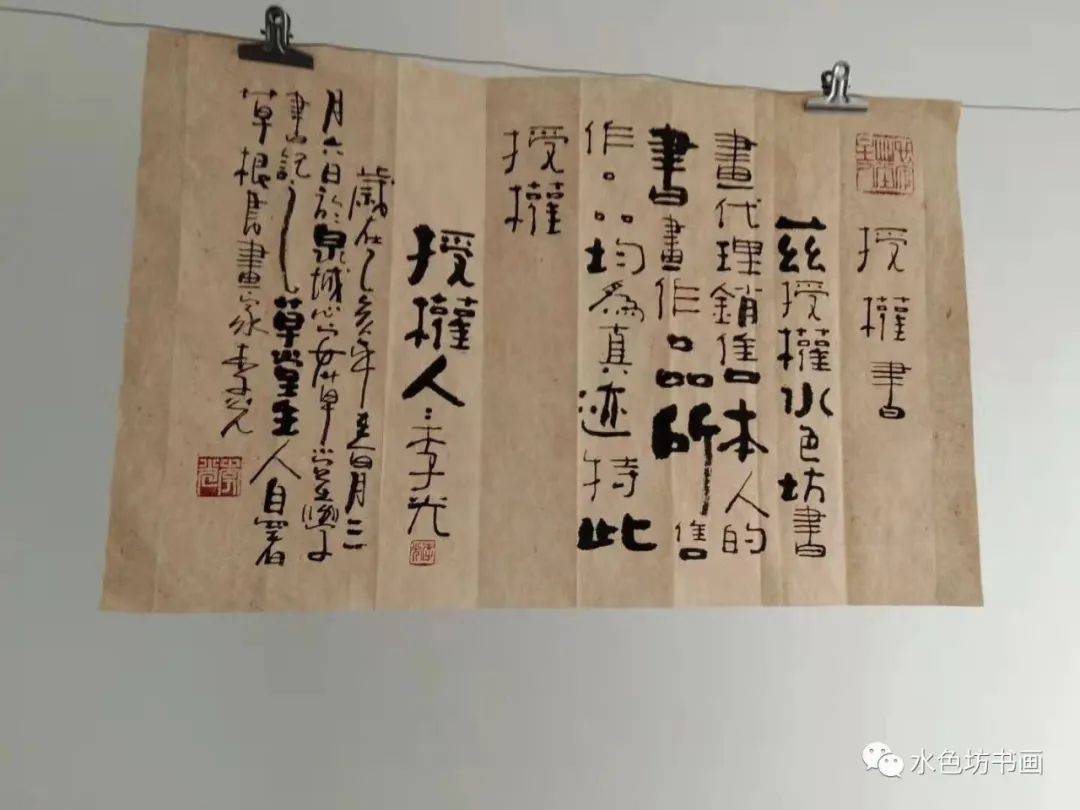 授權書
茲授權水色坊書
畫代理銷售本人的
書畫作品所售
作品均為真迹特此
授權
授權人：李光
歲在己亥年
月六日於泉城
草堂主人自署
草根書畫家李光
水色坊书画